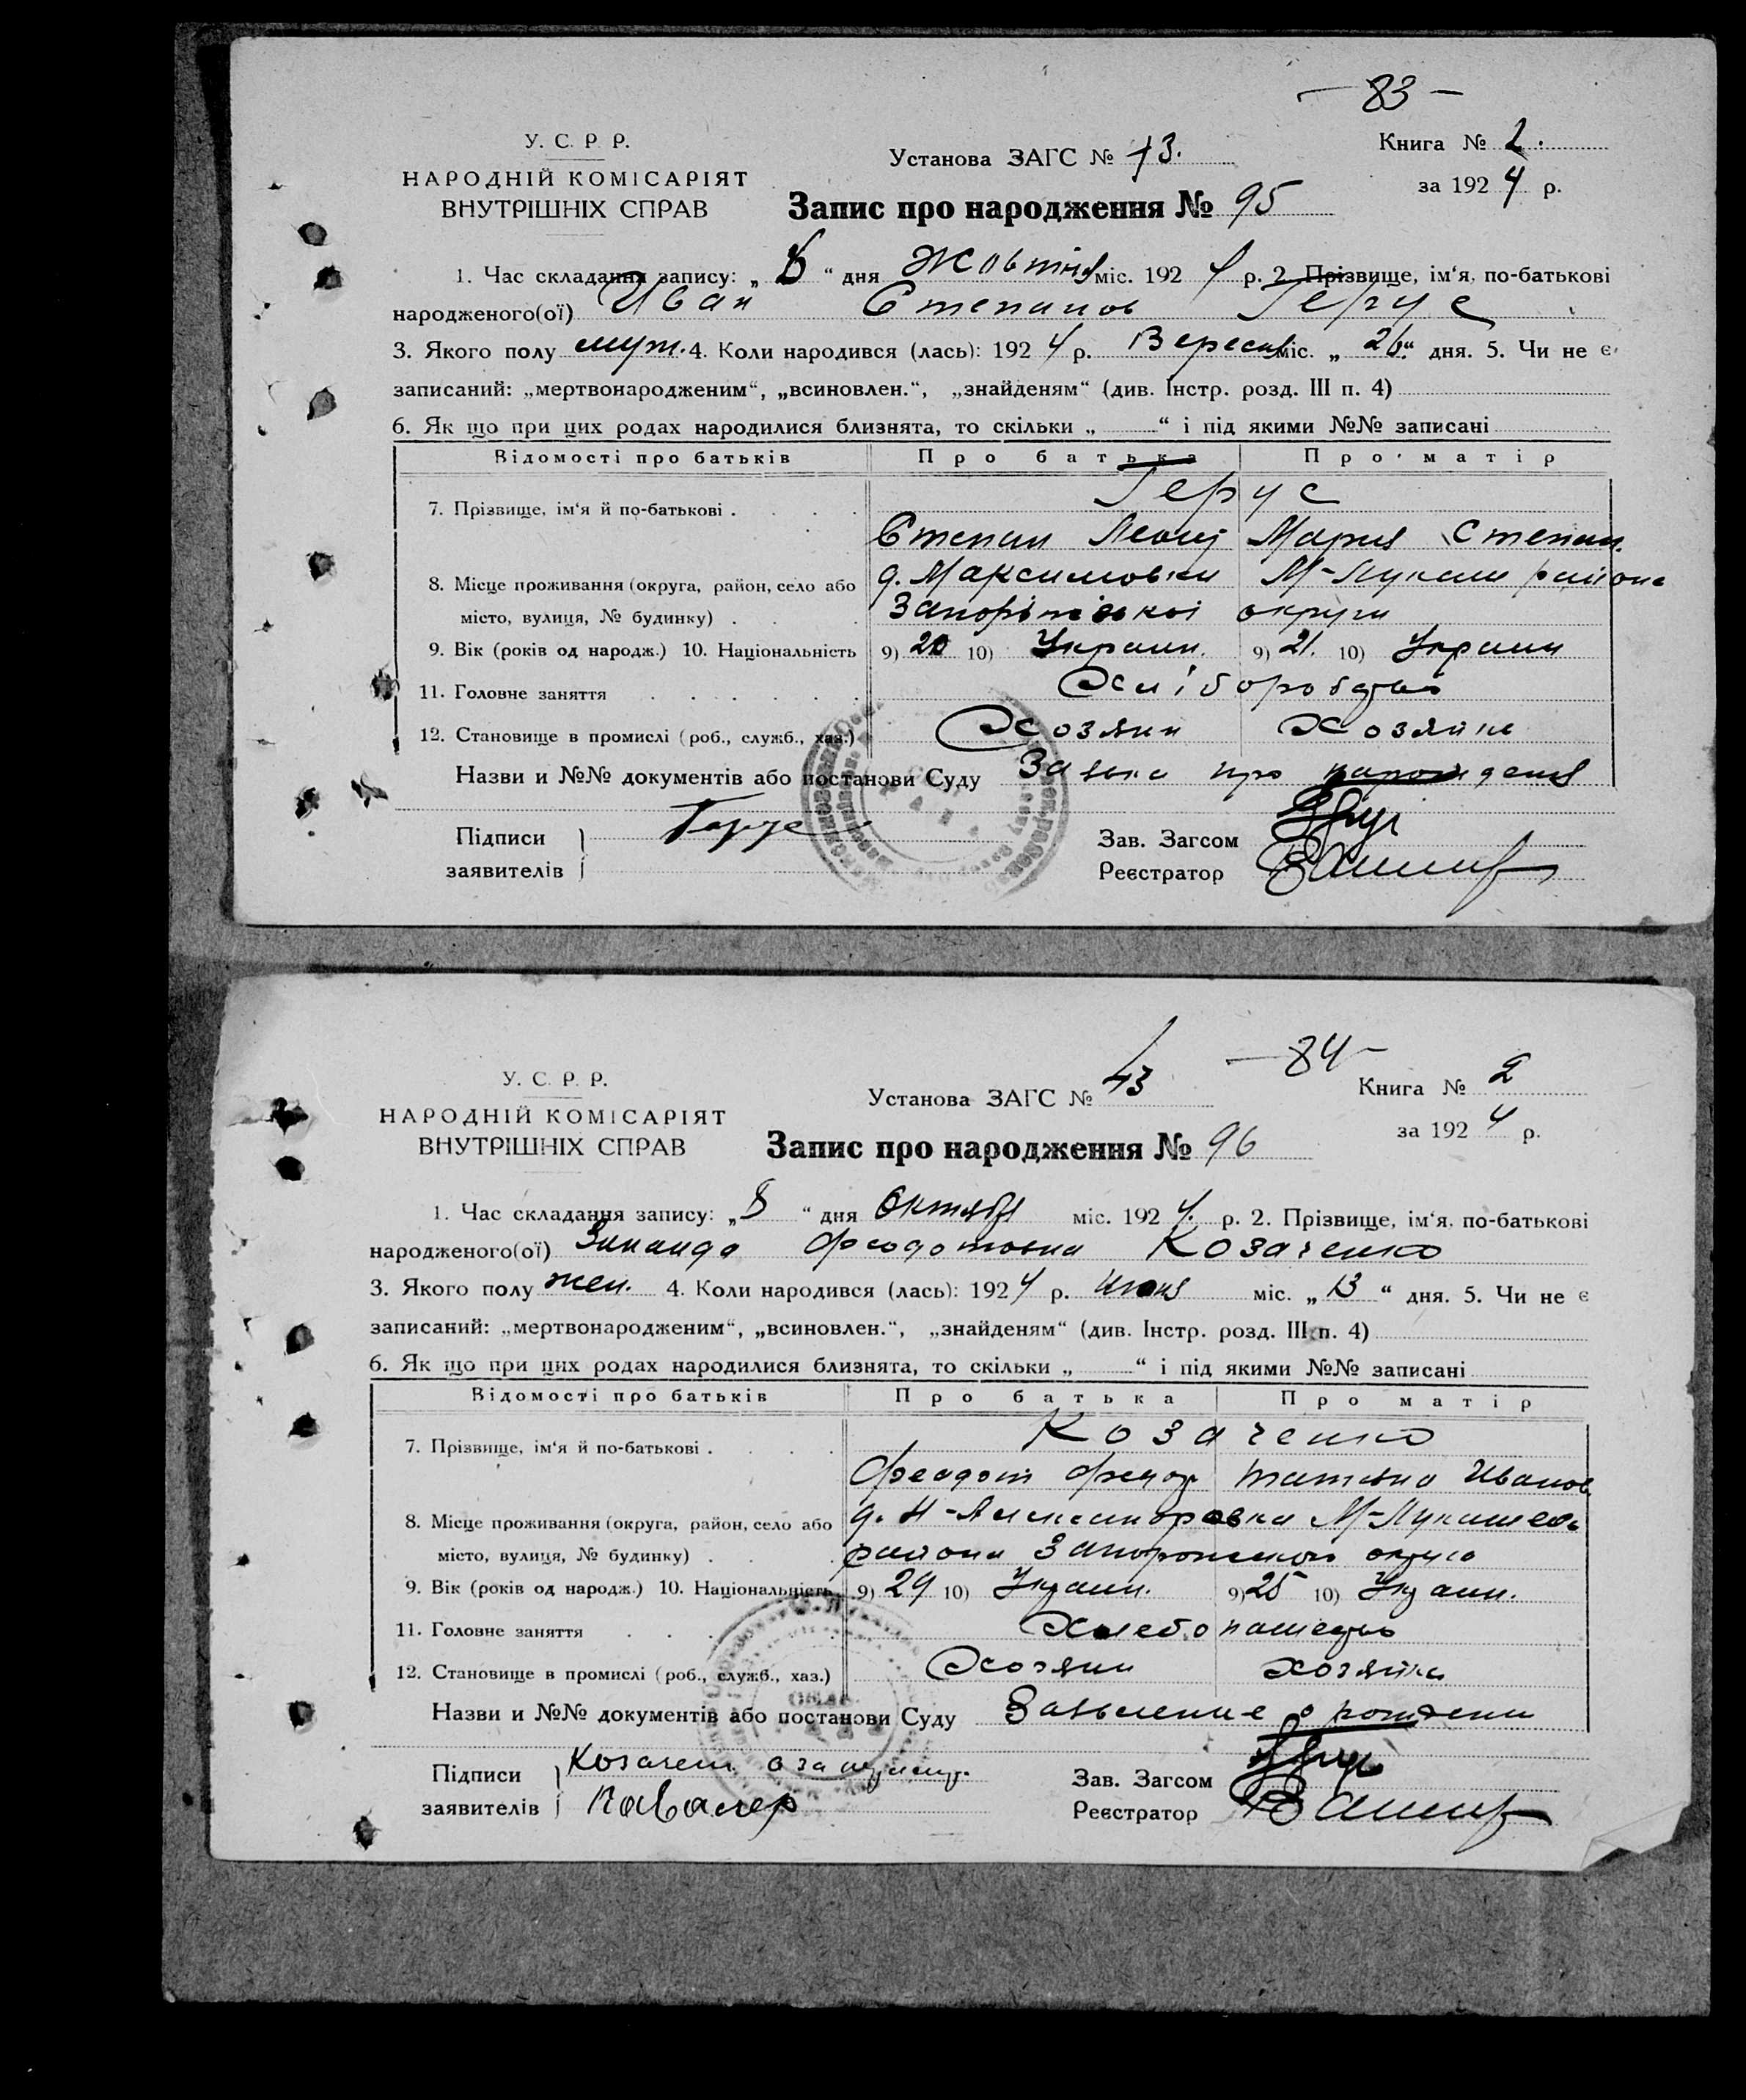 — 83 —
У. С. Р. Р.
НАРОДНІЙ КОМІСАРІЯТ
ВНУТРІШНІХ СПРАВ
Установа ЗАГС № 13.
Книга № 2.
за 1924 р.
Запис про народження № 95
1. Час складання запису: „ 8 “ дня Жовтня міс. 1924 р. 2. Прізвище, ім‘я, по-батькові
народженого(ої) Иван Степанов Герус
3. Якого полу муж. 4. Коли народився (лась): 1924 р. Вересня міс. „ 26 “ дня. 5. Чи не є
записаний: „мертвонародженим“, „всиновлен.“, „знайденям“ (див. Інстр. розд. III п. 4)
6. Як що при цих родах народилися близнята, то скільки „ “ і під якими №№ записані
Відомості про батьків Про батька Про матір
7. Прізвище, ім‘я й по-батькові . Герус
Степан Мария Степан.
8. Місце проживання (округа, район, село або д. Максимовки М-Лукаш района
місто, вулиця, № будинку) . Запоріжської округи
9. Вік (років од народж.) 10. Національність 9) 20 10) Украин. 9) 21. 10) Украин
11. Головне заняття Хліборобство
12. Становище в промислі (роб., служб., хаз.) Хозяин Хозяйка
Назви и №№ документів або постанови Суду Заява про народженя
Підписи Герус
заявителів
Зав. Загсом
Реєстратор
— 84 —
У. С. Р. Р.
НАРОДНІЙ КОМІСАРІЯТ
ВНУТРІШНІХ СПРАВ
Установа ЗАГС № 13
Книга № 2
за 1924 р.
Запис про народження № 96
1. Час складання запису: „ 8 “ дня Октября міс. 1924. р. 2. Прізвище, ім‘я, по-батькові
народженого(ої) Зинаида Феодотовна Козаченко
3. Якого полу жен. 4. Коли народився (лась): 1924 р. Июня міс. „ 13 “ дня. 5. Чи не є
записаний: „мертвонародженим“, „всиновлен.“, „знайденям“ (див. Інстр. розд. III п. 4)
6. Як що при цих родах народилися близнята, то скільки „ “ і під якими №№ записані
Відомості про батьків Про батька Про матір
7. Прізвище, ім‘я й по-батькові . Козаченко
Феодот Федор Татьяна Иванов.
8. Місце проживання (округа, район, село або д. Н-Александровка М-Лукашев.
місто, вулиця, № будинку) . района Запорожского округа
9. Вік (років од народж.) 10. Національність 9) 29 10) Украин. 9) 25 10) Украин.
11. Головне заняття Хлебопашество
12. Становище в промислі (роб., служб., хаз.) Хозяин хозяйка
Назви и №№ документів або постанови Суду Заявление о рождении
Підписи Козачен.
заявителів
Зав. Загсом
Реєстратор